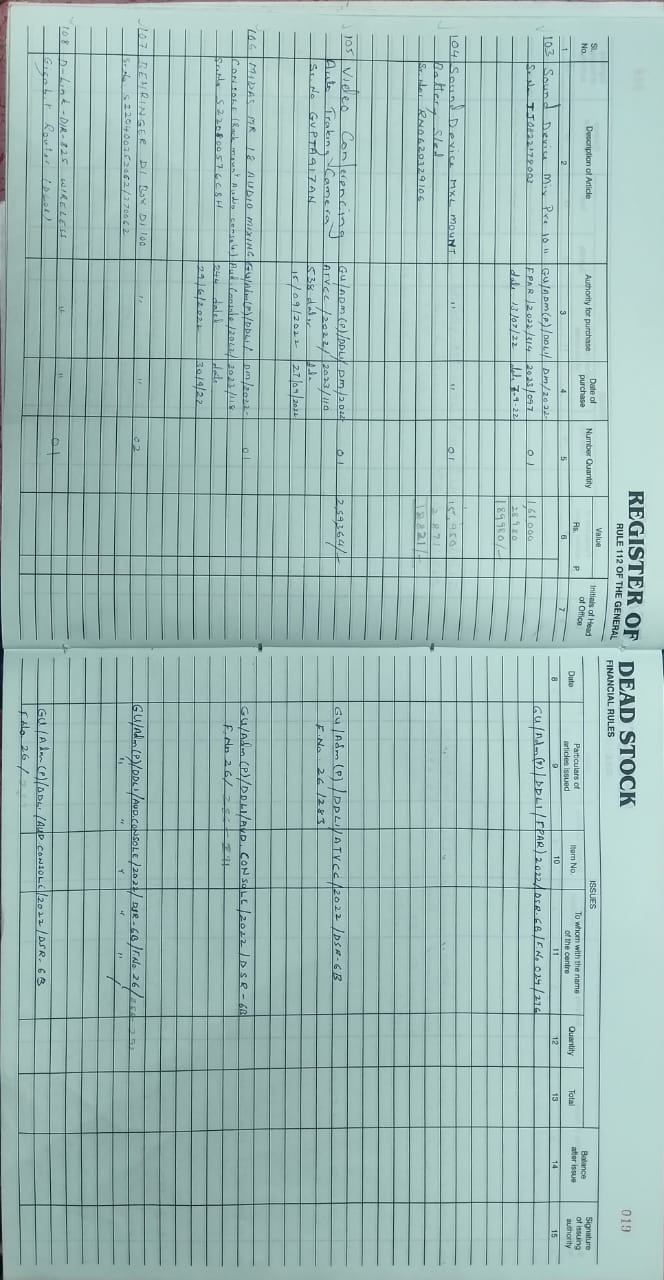 REGISTER OF DEAD STOCK
RULE 112 OF THE GENERAL FINANCIAL RULES
019
Sl. No.
Description of Article
Authority for purchase
Date of purchase
Number Quantity
Value
Rs.
P.
Initials of Head of Office
Date
Particulars of articles issued
ISSUES
Item No.
To whom with the name of the centre
Quantity
Total
Balance after issue
Signature of issuing authority
1 2 3 4 5 6 7 8 9 10 11 12 13 14 15
103 Sound Device Mix Pre 10 II GU/ADM(P)/DDLI/ DM/2022- 01 161000 GU/Adm(P)/DDLI/FPAR/2022/DSR-6B/F.No 024/276
Sr. No TJ0822179002 FPAR/2022/314 2023/097 28980
date 13/07/22 dt. 7-9-22 189980/-
104 Sound Device MXL MOUNT " " 01 15,950
Battery Sled 2871
Sr. No: RN0620329106 18821/-
105 Video Conferencing GU/ADM(P)/DDLI/ DM/2022 01 2,59,364/- GU/Adm(P)/DDLI/ATVCC/2022/DSR-6B
Auto Traking Camera ATVCC/2022/ 2023/110 F.No. 26/283
Sr. No GVPTA917AN 538 date dt.
15/09/2022 27/09/2022
106 MIDAS MR 18 AUDIO MIXING GU/Adm(P)/DDLI/ DM/2022- 01 GU/Adm(P)/DDLI/AUD.CONSOLE/2022/DSR-6B
CONSOLE (Rack mount Audio console) Aud.Console/2022/ 2023/118 F.No 26/
Sr.No S220800576C8H 244 dated date
29/6/2022 30/9/22
107 BEHRINGER DI BOX DI 100 " " 02 GU/Adm(P)/DDLI/AUD.CONSOLE/2022/DSR-6B/F.No 26/
Sr.No " " " " "
108 D-Link-DIR-825 WIRELESS " " 01 GU/Adm(P)/DDLI/AUD CONSOLE/2022/DSR-6B
Gigabit Router F.No 26/